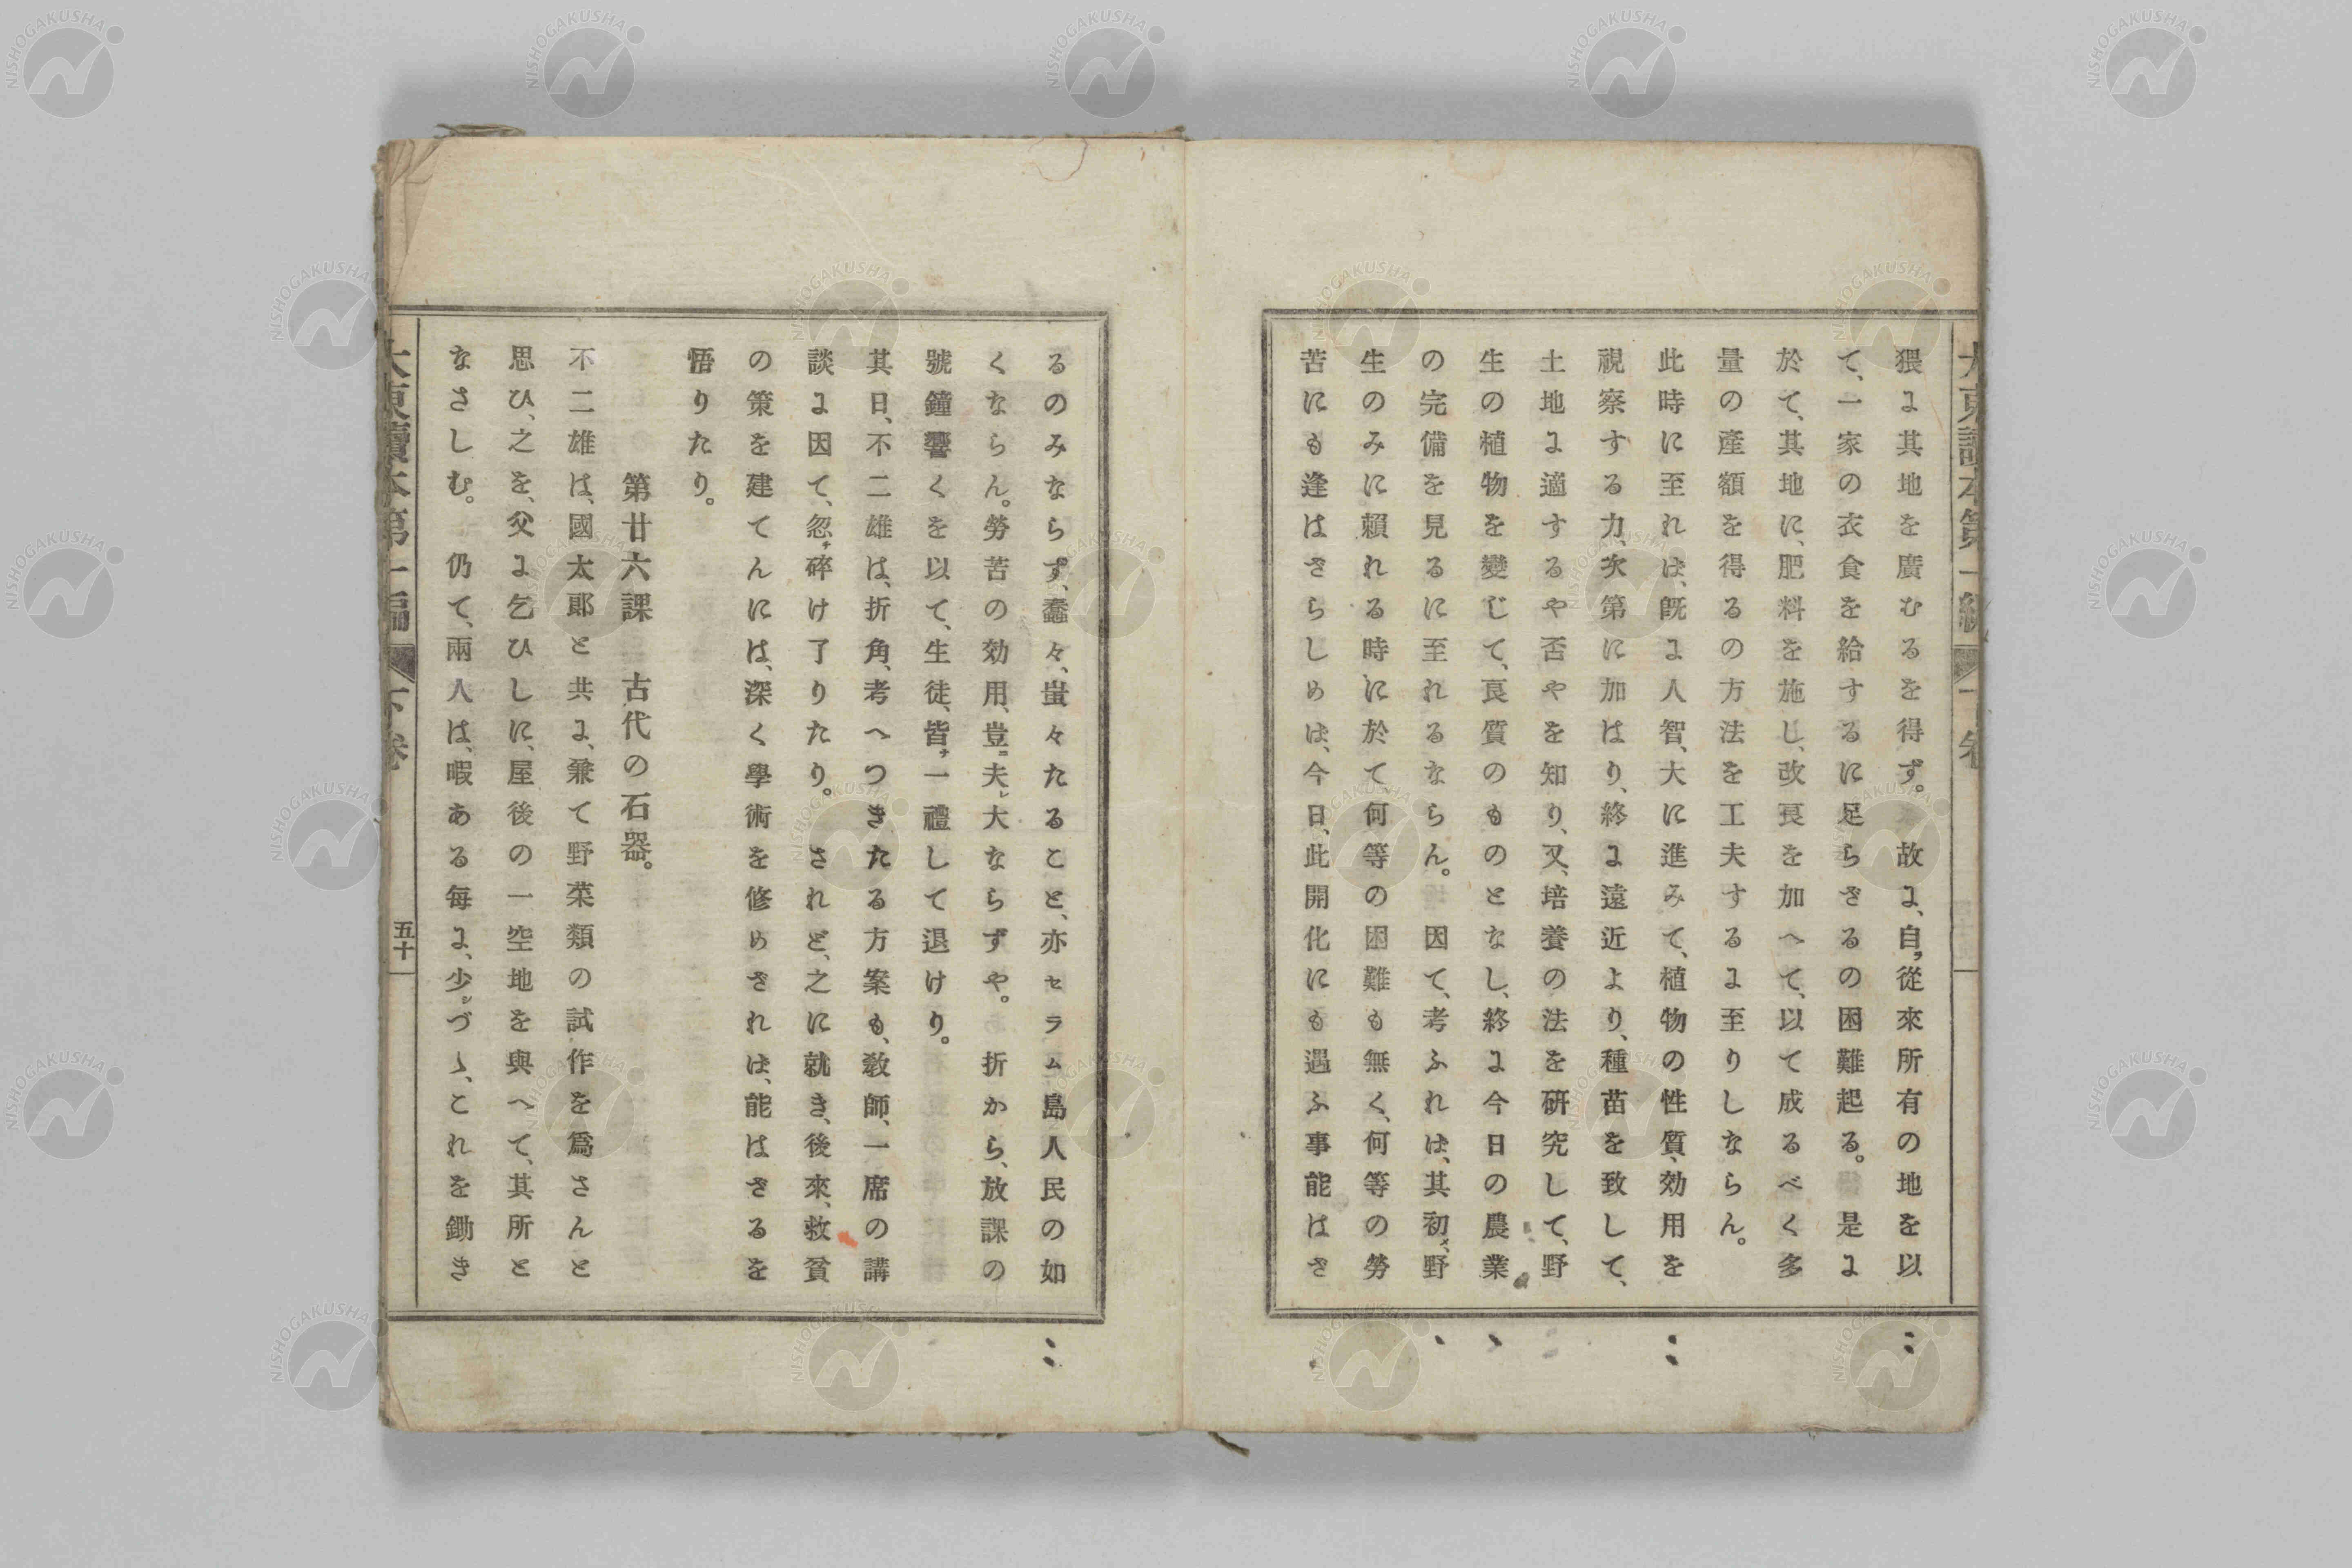 猥に其地を廣むるを得ず。故に、自ラ從來所有の地を以
て、一家の衣食を給するに足らざるの困難起る。是に
於て、其地に、肥料を施し、改良を加へて、以て成るべく多
量の産額を得るの方法を工夫するに至りしならん。
此時に至れは、既に人智、大に進みて、植物の性質、効用を
視察する力、次第に加はり、終に遠近より、種苗を致して、
土地に適するや否やを知り、又、培養の法を研究して、野
生の植物を變じて、良質のものとなし、終に今日の農業
の完備を見るに至れるならん。因て、考ふれは、其初メ、野
生のみに賴れる時に於て、何等の困難も無く、何等の勞
苦にも逢はざらしめは、今日、此開化にも遇ふ事能はざ
るのみならず、蠢々、蚩々たること、亦セラム島人民の如
くならん。勞苦の効用、豈ニ夫レ大ならずや。折から、放課の
號鐘響くを以て、生徒、皆ナ一禮して退けり。
其日、不二雄は、折角、考へつきたる方案も、敎師、一席の講
談に因て、忽チ碎け了りたり。されど、之に就き、後來、救貧
の策を建てんには、深く學術を修めざれは、能はざるを
悟りたり。
第廿六課 古代の石器。
不二雄は、國太郞と共に、兼て野菜類の試作を爲さんと
思ひ、之を、父に乞ひしに、屋後の一空地を與へて、其所と
なさしむ。仍て、兩人は、暇ある每に、少シづゝ、これを鋤き
大東讀本第一編 下卷
五十